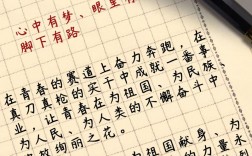 心中有梦、眼里有
脚下有路
在青春的赛道上奋力奔跑，在
真刀真枪的实干中成就一番事
业，让青春在为祖国、为民族
、为人民、为人类的不懈奋斗中
绽放绚丽之花。
为祖国献身、为
的力量